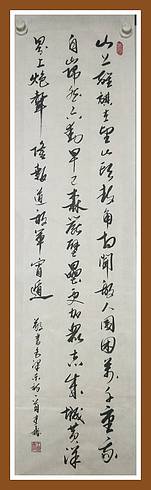 山下旌旗在望山头鼓角相闻敌人围困万千重我
自岿然不动早已森严壁垒更加众志成城黄洋
界上炮声隆报道敌军宵遁